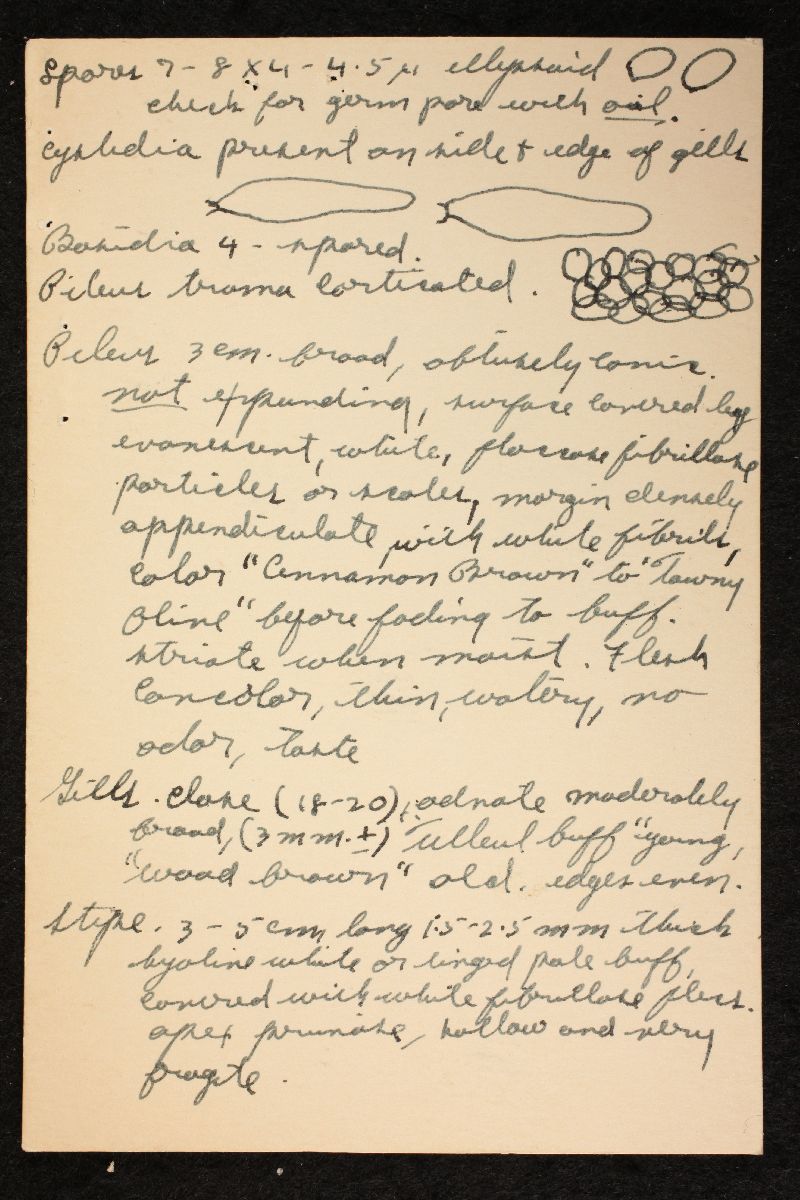 Spores 7 - 8 x 4 - 4.5 µ ellipsoid
check for germ pore with oil.
Cystidia present on side & edge of gills
Basidia 4 - spored.
Pileus trama corticated.
Pileus 3 cm. broad, obtusely conic.
not expanding, surface covered by
evanescent, white, floccose fibrillose
particles or scales, margin densely
appendiculate with white fibrils,
color "Cinnamon Brown" to "Tawny
Olive" before fading to buff.
striate when moist. Flesh
concolor, thin, watery, no
odor, taste
Gills. close (18-20), adnate moderately
broad, (3 mm.±) "Tilleul buff" young,
"wood brown" old. edges even.
Stipe. 3 - 5 cm long 1.5-2.5 mm thick
hyaline white or tinged pale buff,
covered with white fibrillose flecs.
apex pruinose, hollow and very
fragile.